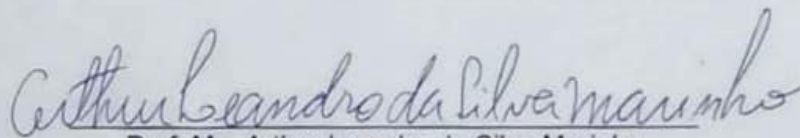 Arthur Leandro da Silva Marinho
Prof. Me. Arthur Leandro da Silva Marinho